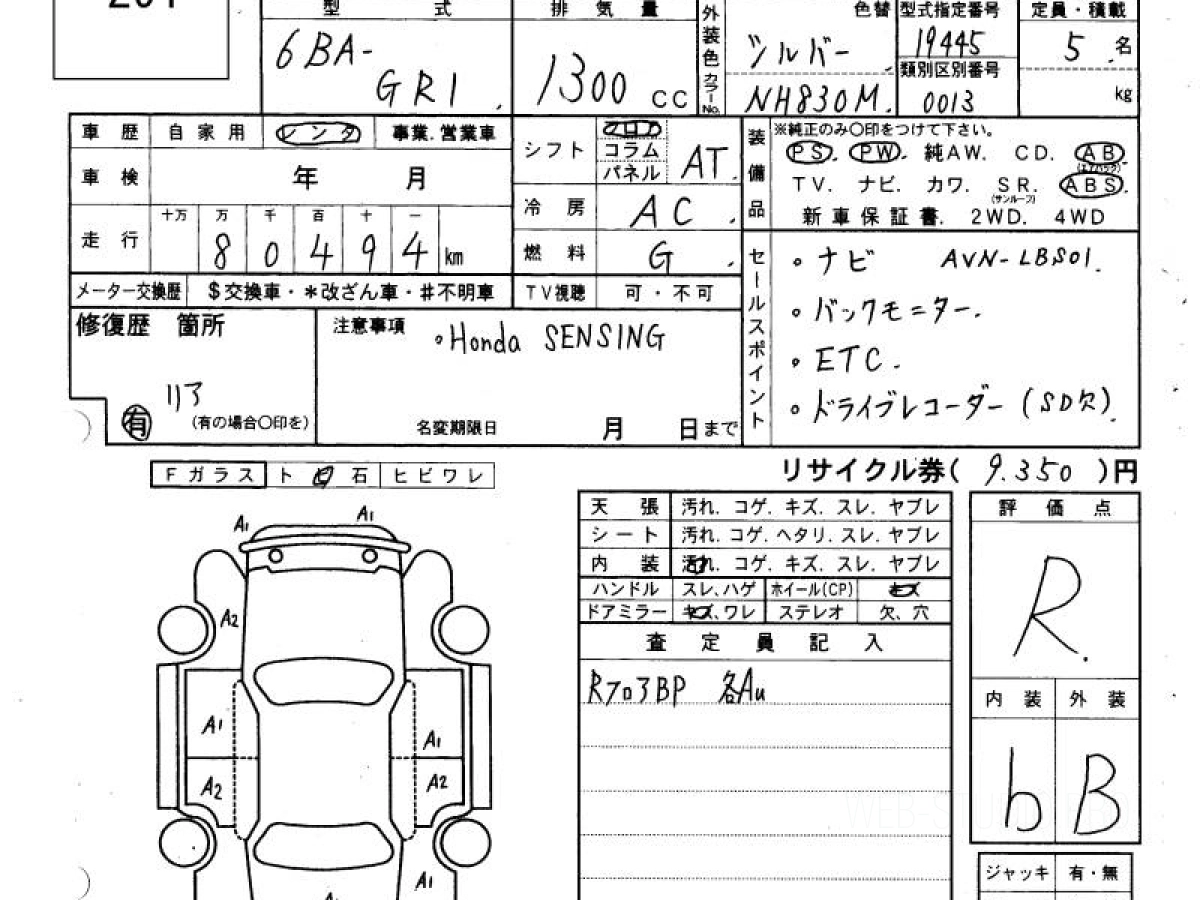 型 式
排 気 量
色替
型式指定番号
定員・積載
6BA-
GR1.
1300 CC
外装色 カラーNo.
シルバー
NH830M.
19445
類別区別番号
0013
5 名
kg
車 歴 自 家 用 レンタ 事業.営業車
車 検 年 月
走 行 十万 万 千 百 十 一
8 0 4 9 4 km
メーター交換歴 $交換車・*改ざん車・#不明車
シフト フロア
コラム
パネル
AT.
冷 房 AC.
燃 料 G.
TV視聴 可・不可
装備品
※純正のみ〇印をつけて下さい。
PS. PW. 純AW. CD. AB
(エアバック)
TV. ナビ. カワ. SR. ABS.
(サンルーフ)
新車保証書. 2WD. 4WD
セールスポイント
・ナビ AVN-LBS01.
・バックモニター.
・ETC.
・ドライブレコーダー (SD欠)
修復歴 箇所
リア
有 (有の場合〇印を)
注意事項
・Honda SENSING
名変期限日 月 日まで
リサイクル券( 9.350 )円
Fガラス ト ヒ 石 ヒビワレ
A1 A1
A2
A1 A1
A2 A2
A1
天 張 汚れ. コゲ. キズ. スレ. ヤブレ
シート 汚れ. コゲ. ヘタリ. スレ. ヤブレ
内 装 汚れ. コゲ. キズ. スレ. ヤブレ
ハンドル スレ、ハゲ ホイール(CP) キズ
ドアミラー キズ、ワレ ステレオ 欠、穴
査 定 員 記 入
Rフロア BP 各Au
評 価 点
R.
内 装 外 装
b B
ジャッキ 有・無